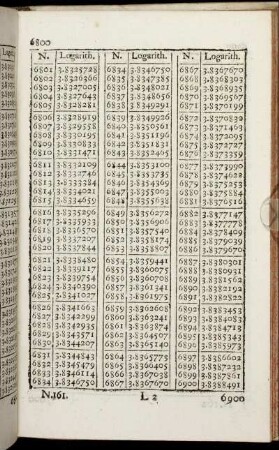 6800
N. Logarith. N. Logarith. N. Logarith.
6801 3.8325728 6834 3.8346750 6867 3.8367670
6802 3.8326366 6835 3.8347385 6868 3.8368303
6803 3.8327005 6836 3.8348021 6869 3.8368935
6804 3.8327643 6837 3.8348656 6870 3.8369567
6805 3.8328281 6838 3.8349291 6871 3.8370199
6806 3.8328919 6839 3.8349926 6872 3.8370832
6807 3.8329558 6840 3.8350561 6873 3.8371463
6808 3.8330195 6841 3.8351196 6874 3.8372095
6809 3.8330833 6842 3.8351831 6875 3.8372727
6810 3.8331471 6843 3.8352465 6876 3.8373359
6811 3.8332109 6844 3.8353100 6877 3.8373990
6812 3.8332746 6845 3.8353735 6878 3.8374622
6813 3.8333384 6846 3.8354369 6879 3.8375253
6814 3.8334021 6847 3.8355003 6880 3.8375884
6815 3.8334659 6848 3.8355638 6881 3.8376516
6816 3.8335296 6849 3.8356272 6882 3.8377147
6817 3.8335933 6850 3.8356906 6883 3.8377778
6818 3.8336570 6851 3.8357540 6884 3.8378409
6819 3.8337207 6852 3.8358174 6885 3.8379039
6820 3.8337844 6853 3.8358807 6886 3.8379670
6821 3.8338480 6854 3.8359441 6887 3.8380301
6822 3.8339117 6855 3.8360075 6888 3.8380931
6823 3.8339754 6856 3.8360708 6889 3.8381562
6824 3.8340390 6857 3.8361341 6890 3.8382192
6825 3.8341027 6858 3.8361975 6891 3.8382822
6826 3.8341663 6859 3.8362608 6892 3.8383453
6827 3.8342299 6860 3.8363241 6893 3.8384083
6828 3.8342935 6861 3.8363874 6894 3.8384713
6829 3.8343571 6862 3.8364507 6895 3.8385343
6830 3.8344207 6863 3.8365140 6896 3.8385973
6831 3.8344843 6864 3.8365775 6897 3.8386602
6832 3.8345479 6865 3.8366405 6898 3.8387232
6833 3.8346114 6866 3.8367038 6899 3.8387861
6834 3.8346750 6867 3.8367670 6900 3.8388491
N.161. L 2 6900